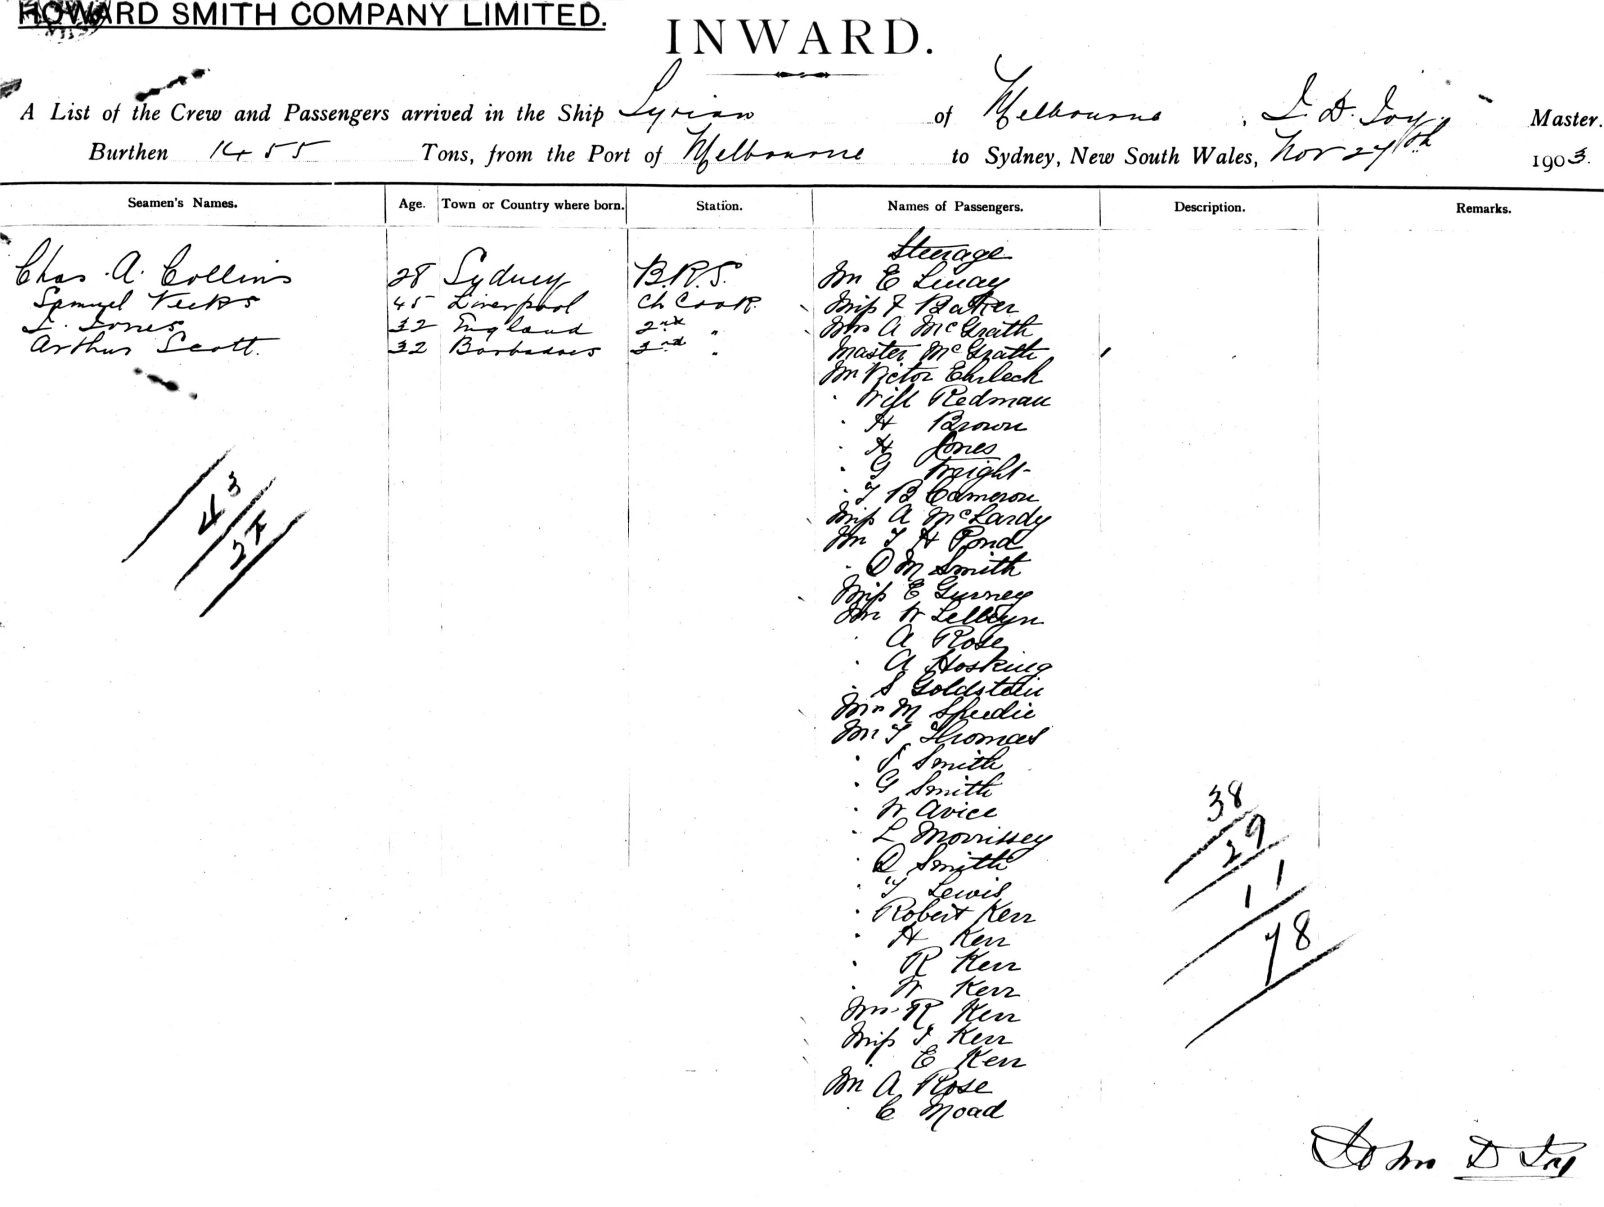 HOWARD SMITH COMPANY LIMITED.
INWARD.
A List of the Crew and Passengers arrived in the Ship Syrian of Melbourne, J. D. Joy, Master.
Burthen 1455 Tons, from the Port of Melbourne to Sydney, New South Wales, Nov 27th 1903.
Seamen's Names. Age. Town or Country where born. Station. Names of Passengers. Description. Remarks.
Steerage
Chas. A. Collins 28 Sydney B.R.S. Mr E
Samuel 45 Liverpool Ch Cook. Miss F Baker
Jones 32 England 2nd " Mrs A McGrath
Arthur Scott. 32 Barbadoes 3rd " Master McGrath
Mr Victor
" Will Redman
" H Brown
" H Jones
" G Wright
" T B Cameron
Miss A McLardy
Mr T H Pond
" D M Smith
Miss E Gurney
Mr W
" A Rose
" A Hosking
" S Goldstein
Mrs M Speedie
Mr T Thomas
" J Smith
" G Smith
" W Avice
" L Morrissey
" D Smith
" T Lewis
" Robert Kerr
" H Kerr
" R Kerr
" W Kerr
Mrs R Kerr
Miss J Kerr
" E Kerr
Mr A Rose
" C Moad
43
38
29
11
78
John D Joy